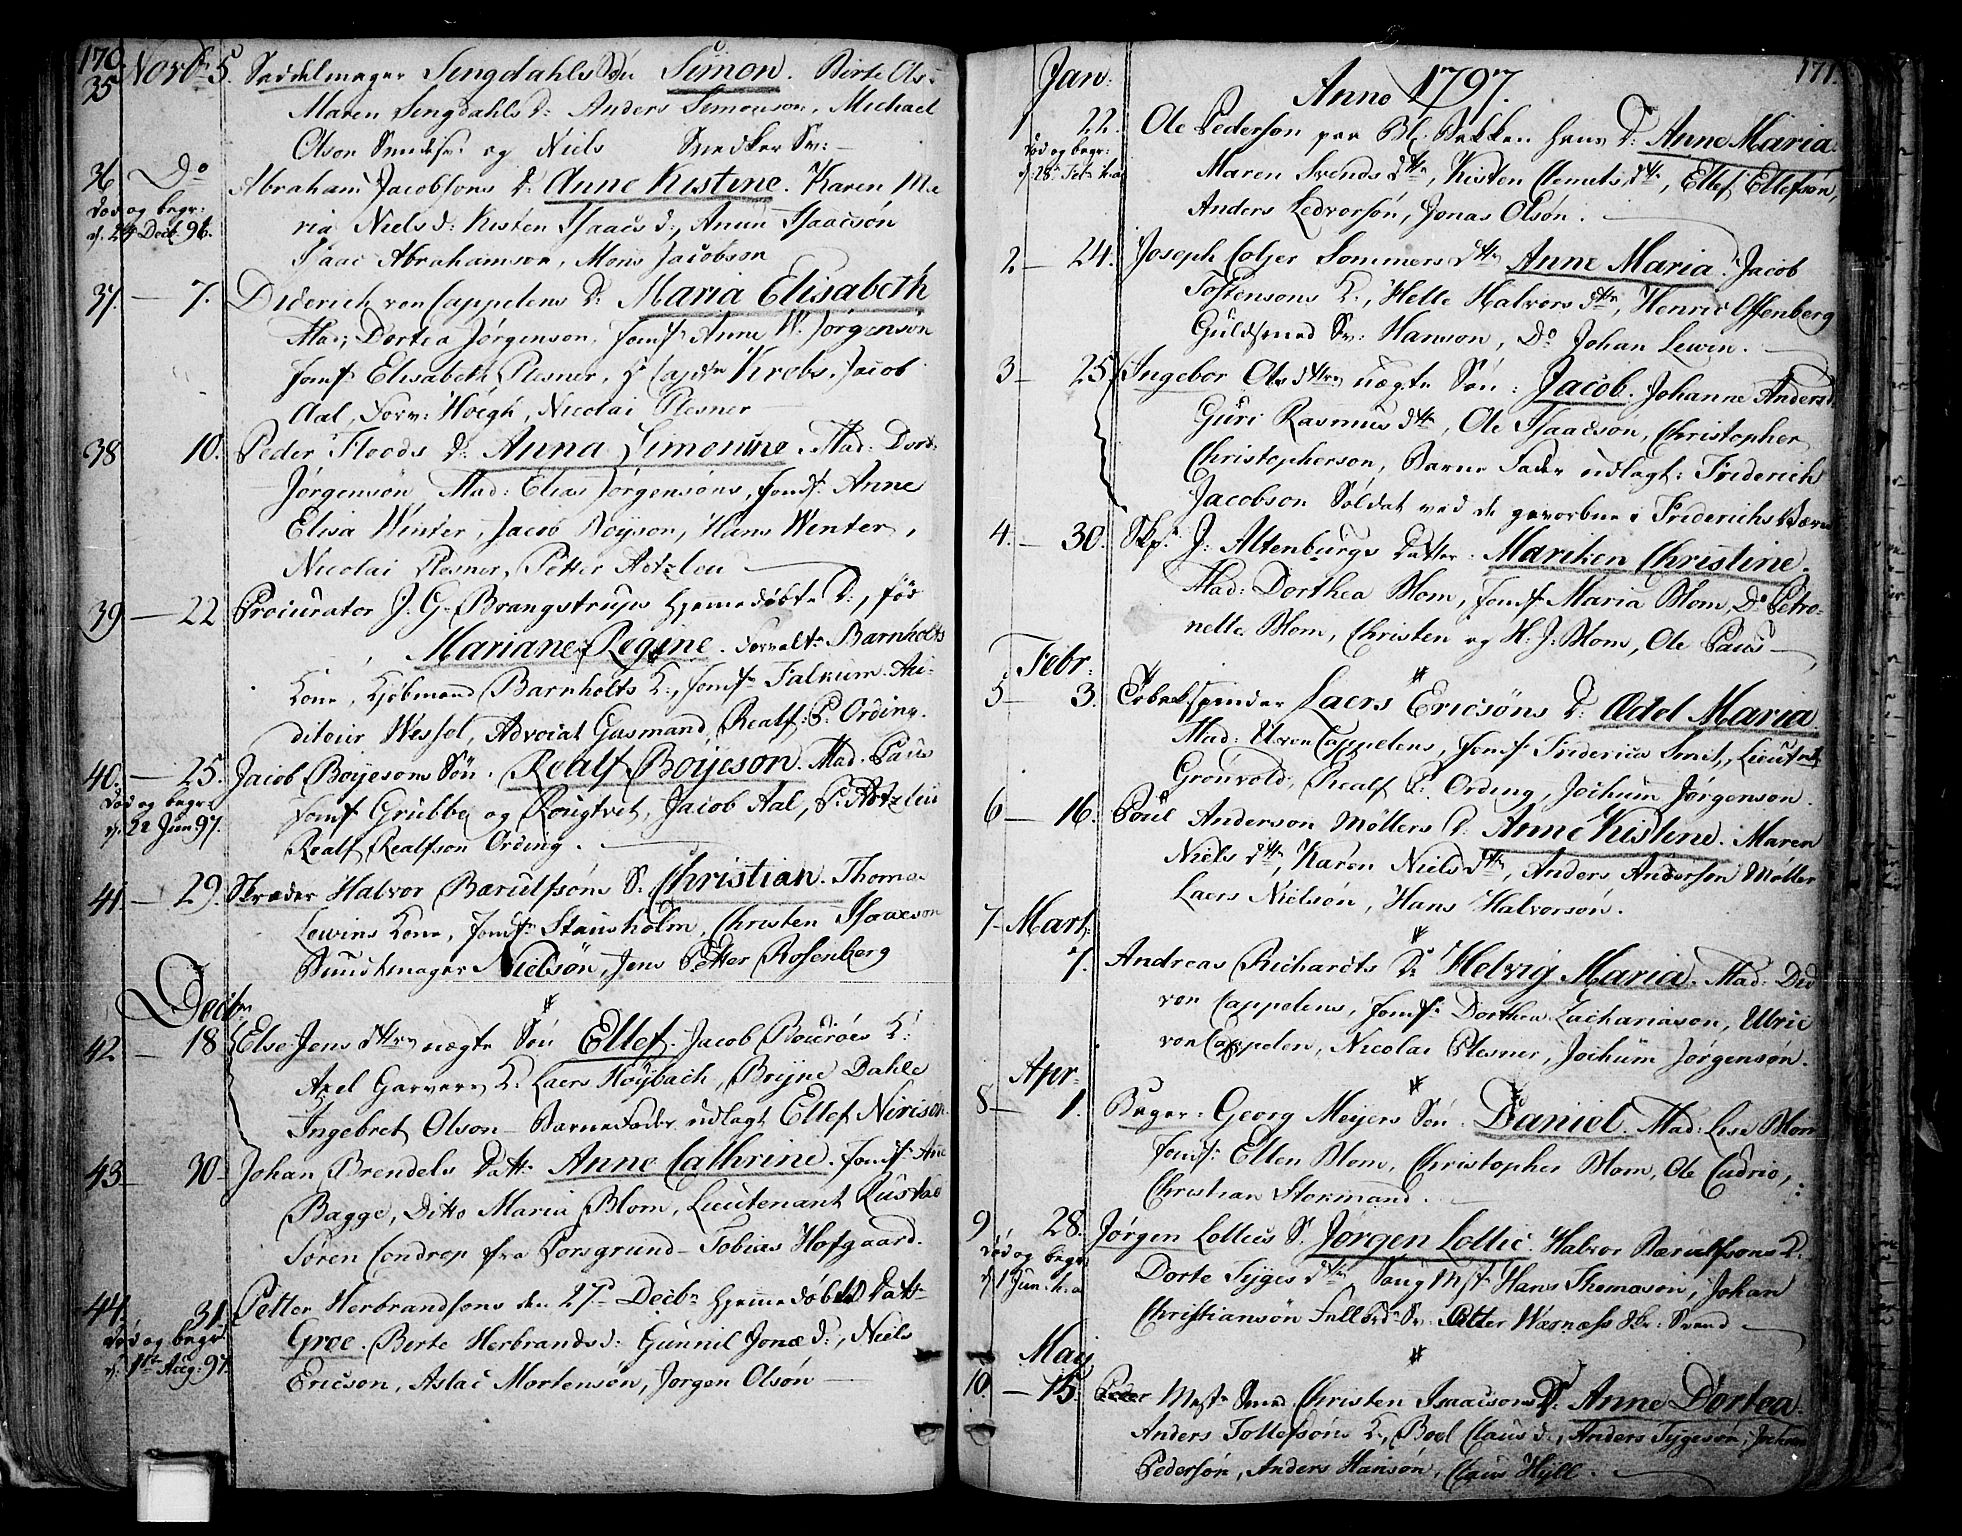 170.
35 Novbr 5. Saddelmager Lengdahls Søn Simon. Birte Ols-
Maren Lengdahls d: Anders Simonson, Michael
Olson og Niels Snedker Sv:
36 Do Abraham Jacobsons D: Anne Kistine. Karen Ma
død og begr: ria Niels d: Kisten Isaacs d:, Anun Isaacsøn
d. 24 Decb. 96. Isaac Abrahamson, Mons Jacobson
37. — 7. Diderich von Cappelens D: Maria Elisabeth
Mad; Dortea Jørgenson, Jomf Anne W. Jørgenson
Jomf Elisabeth Plesner, Hr Capt Krebs, Jacob
Aal, Forv: Höegh, Nicolai Plesner
38 10. Peder Floods D: Anna Simonine. Mad: Dort:
Jørgensøn, Mad: Elias Jørgensøns, Jomf: Anne
Elisa Winter, Jacob Boyson, Hans Winter,
Nicolai Plesner, Petter Aetzleu
39 — 22 Procurator J. G. Brangstrups hjemmedøbte D:, før
Mariane Regine. Forvalt: Barnholts
Kone, Kjøbmand Barnholts K:, Jomf: Falkum. Au-
diteur Wessel, Advocat Gasmand, Realf: P. Ording.
40. — 25. Jacob Boyesons Søn. Realf Boyeson. Mad. Paus
død og begr: Jomf Grubbe og Rougtvet, Jacob Aal, P. Aetzleu
d. 22 Jun 97. Realf Realfson Ording.
41. — 29. Skræder Halvor Barulfsöns S. Christian. Thomas
Lewins Kone, Jomf: Stensholm, Christen Isaacson
Bundtmager Nielsøn, Jens Petter Rosenberg
Decbr
42 — 18 Else Jens dttr uægte Søn Ellef. Jacob K:
Axel Garvers K: Laers Høybach, Boyne Dahle
Ingebret Olson Barnefader udlagt Ellef Nirison
43 30 Johan Brendels Datt: Anne Cathrine. Jomf: Ane
Bagge, Ditto Maria Blom, Lieutenant Rustad
Søren Condrop fra Porsgrund Tobias Hofgaard.
44. 31. Petter Herbrandsons den 27de Decbr hjemmedøbte Datt:
død og begr: Groe. Berte Herbrands d: Gunnil Jonæ d:, Niels
d. 1te Aug: 97. Ericson, Aslac Mortenson, Jørgen Olsøn
171.
Jan: Anno 1797.
1 22. Ole Pederson paa Bl. Bakken hans D: Anne Maria.
død og begr: Maren Svends dttr, Kisten Clemets dttr, Ellef Ellefsøn,
d: 28 Feb. h:a Anders Ledvorsøn, Jonas Olsøn.
2 — 24. Joseph Coljer Sommers dttr Anne Maria. Jacob
Tostensons K:, Helle Halvors dttr, Henric Offenberg
Guldsmed Sv: Hanson, Do Johan Lewin.
3 — 25 Ingebor Ols dttrs uægte Søn: Jacob. Johanne Anders d
Guri Rasmus dttr, Ole Isaacson, Christopher
Christopherson, Barne Fader udlagt: Friderich
Jacobson Soldat ved de gevorbne i Friderichsværn
4. — 30. Skp. J: Altenburgs Datter: Mariken Christine.
Mad: Dorthea Blom, Jomf Maria Blom, Do Petro-
nelle Blom, Christen og H. J: Blom, Ole Paus
Febr:
5 — 3. Tobakspinder Laers Ericsöns D: Ædel Maria
Mad: U von Cappelens, Jomf Friderica Smit, Lieutnt
Grönvold, Realf P. Ording, Jochum Jørgenson.
6 — 16. Poul Anderson Møllers D: Anne Kistine. Maren
Niels dttr, Karen Niels dttr, Anders Anderson Møller
Laers Nielsön, Hans Halvorsön.
7 Mart:
7. Andreas Richardts D: Helvig Maria. Mad: Did
von Cappelens, Jomf: Dorthea Zachariason, Ulric
von Cappelen, Nicolai Plesner, Jochum Jørgensøn.
Apr:
8 — 1. Bager: Georg Meyers Søn. Daniel. Mad: Lise Blom
Jomf: Ellen Blom, Christopher Blom, Ole Cudrio,
Christian Stokmand.
9 28. Jørgen Lollics S. Jørgen Lollic. Halvor Barulfsons K:
død og begr: Dorte Tyges dttr, Saug Mst: Hans Thomasøn, Johan
d. 1 Jun. h.a Christiansøn Sv: Otter Wærness Sv: Svend
May
10 — 15. Peder Mest: Smed Christen Isaacsons D: Anne Dortea.
Anders Tollefsøns K:, Boel Claus d:, Anders Tygesøn, Jochum
Pedersøn, Anders Hansøn, Claus Hyll.